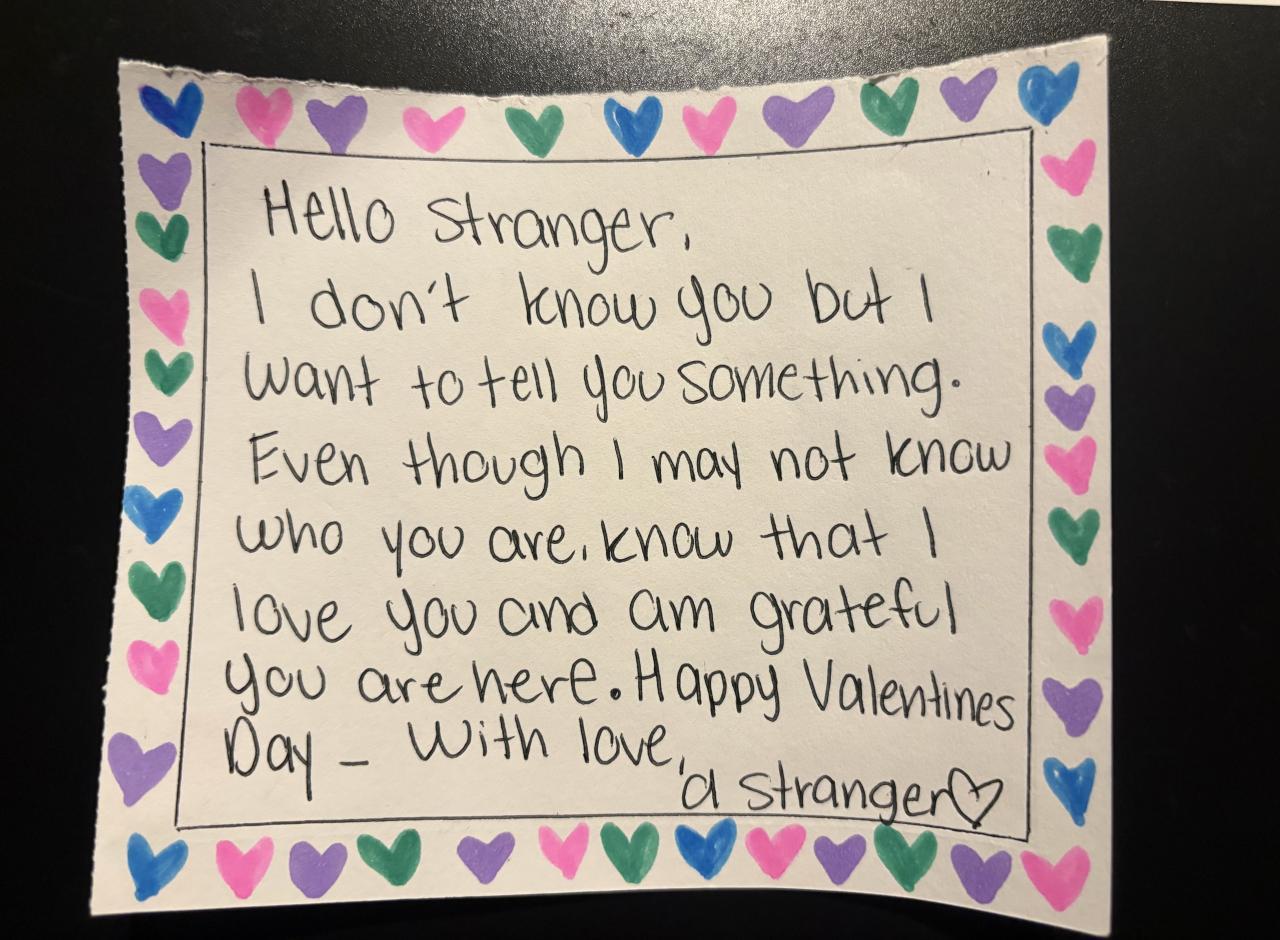 Hello stranger,
I don't know you but I
want to tell you something.
Even though I may not know
who you are, know that I
love you and am grateful
you are here. Happy Valentines
Day – With love,
a stranger♡